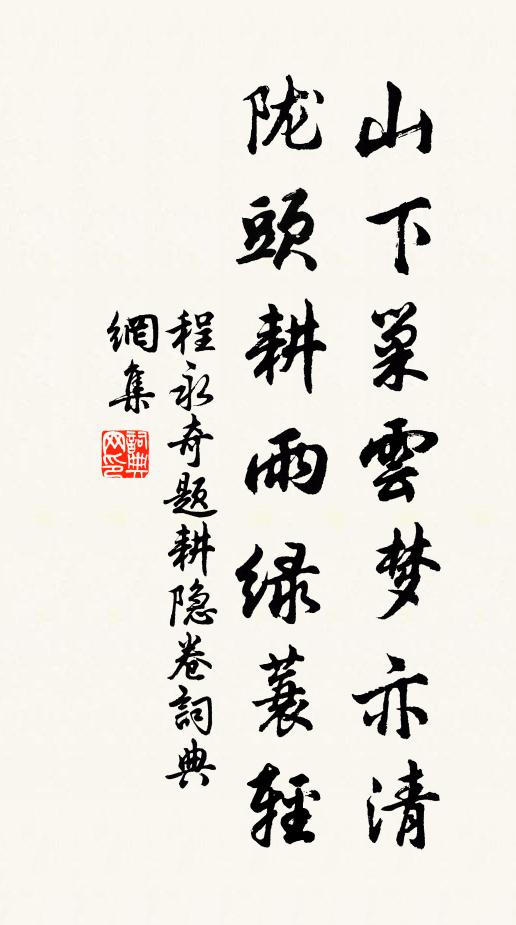 山下巢雲梦亦清
陇頭耕雨绿蓑輕
程永奇题耕隐卷詞典
網集
詞典
网印